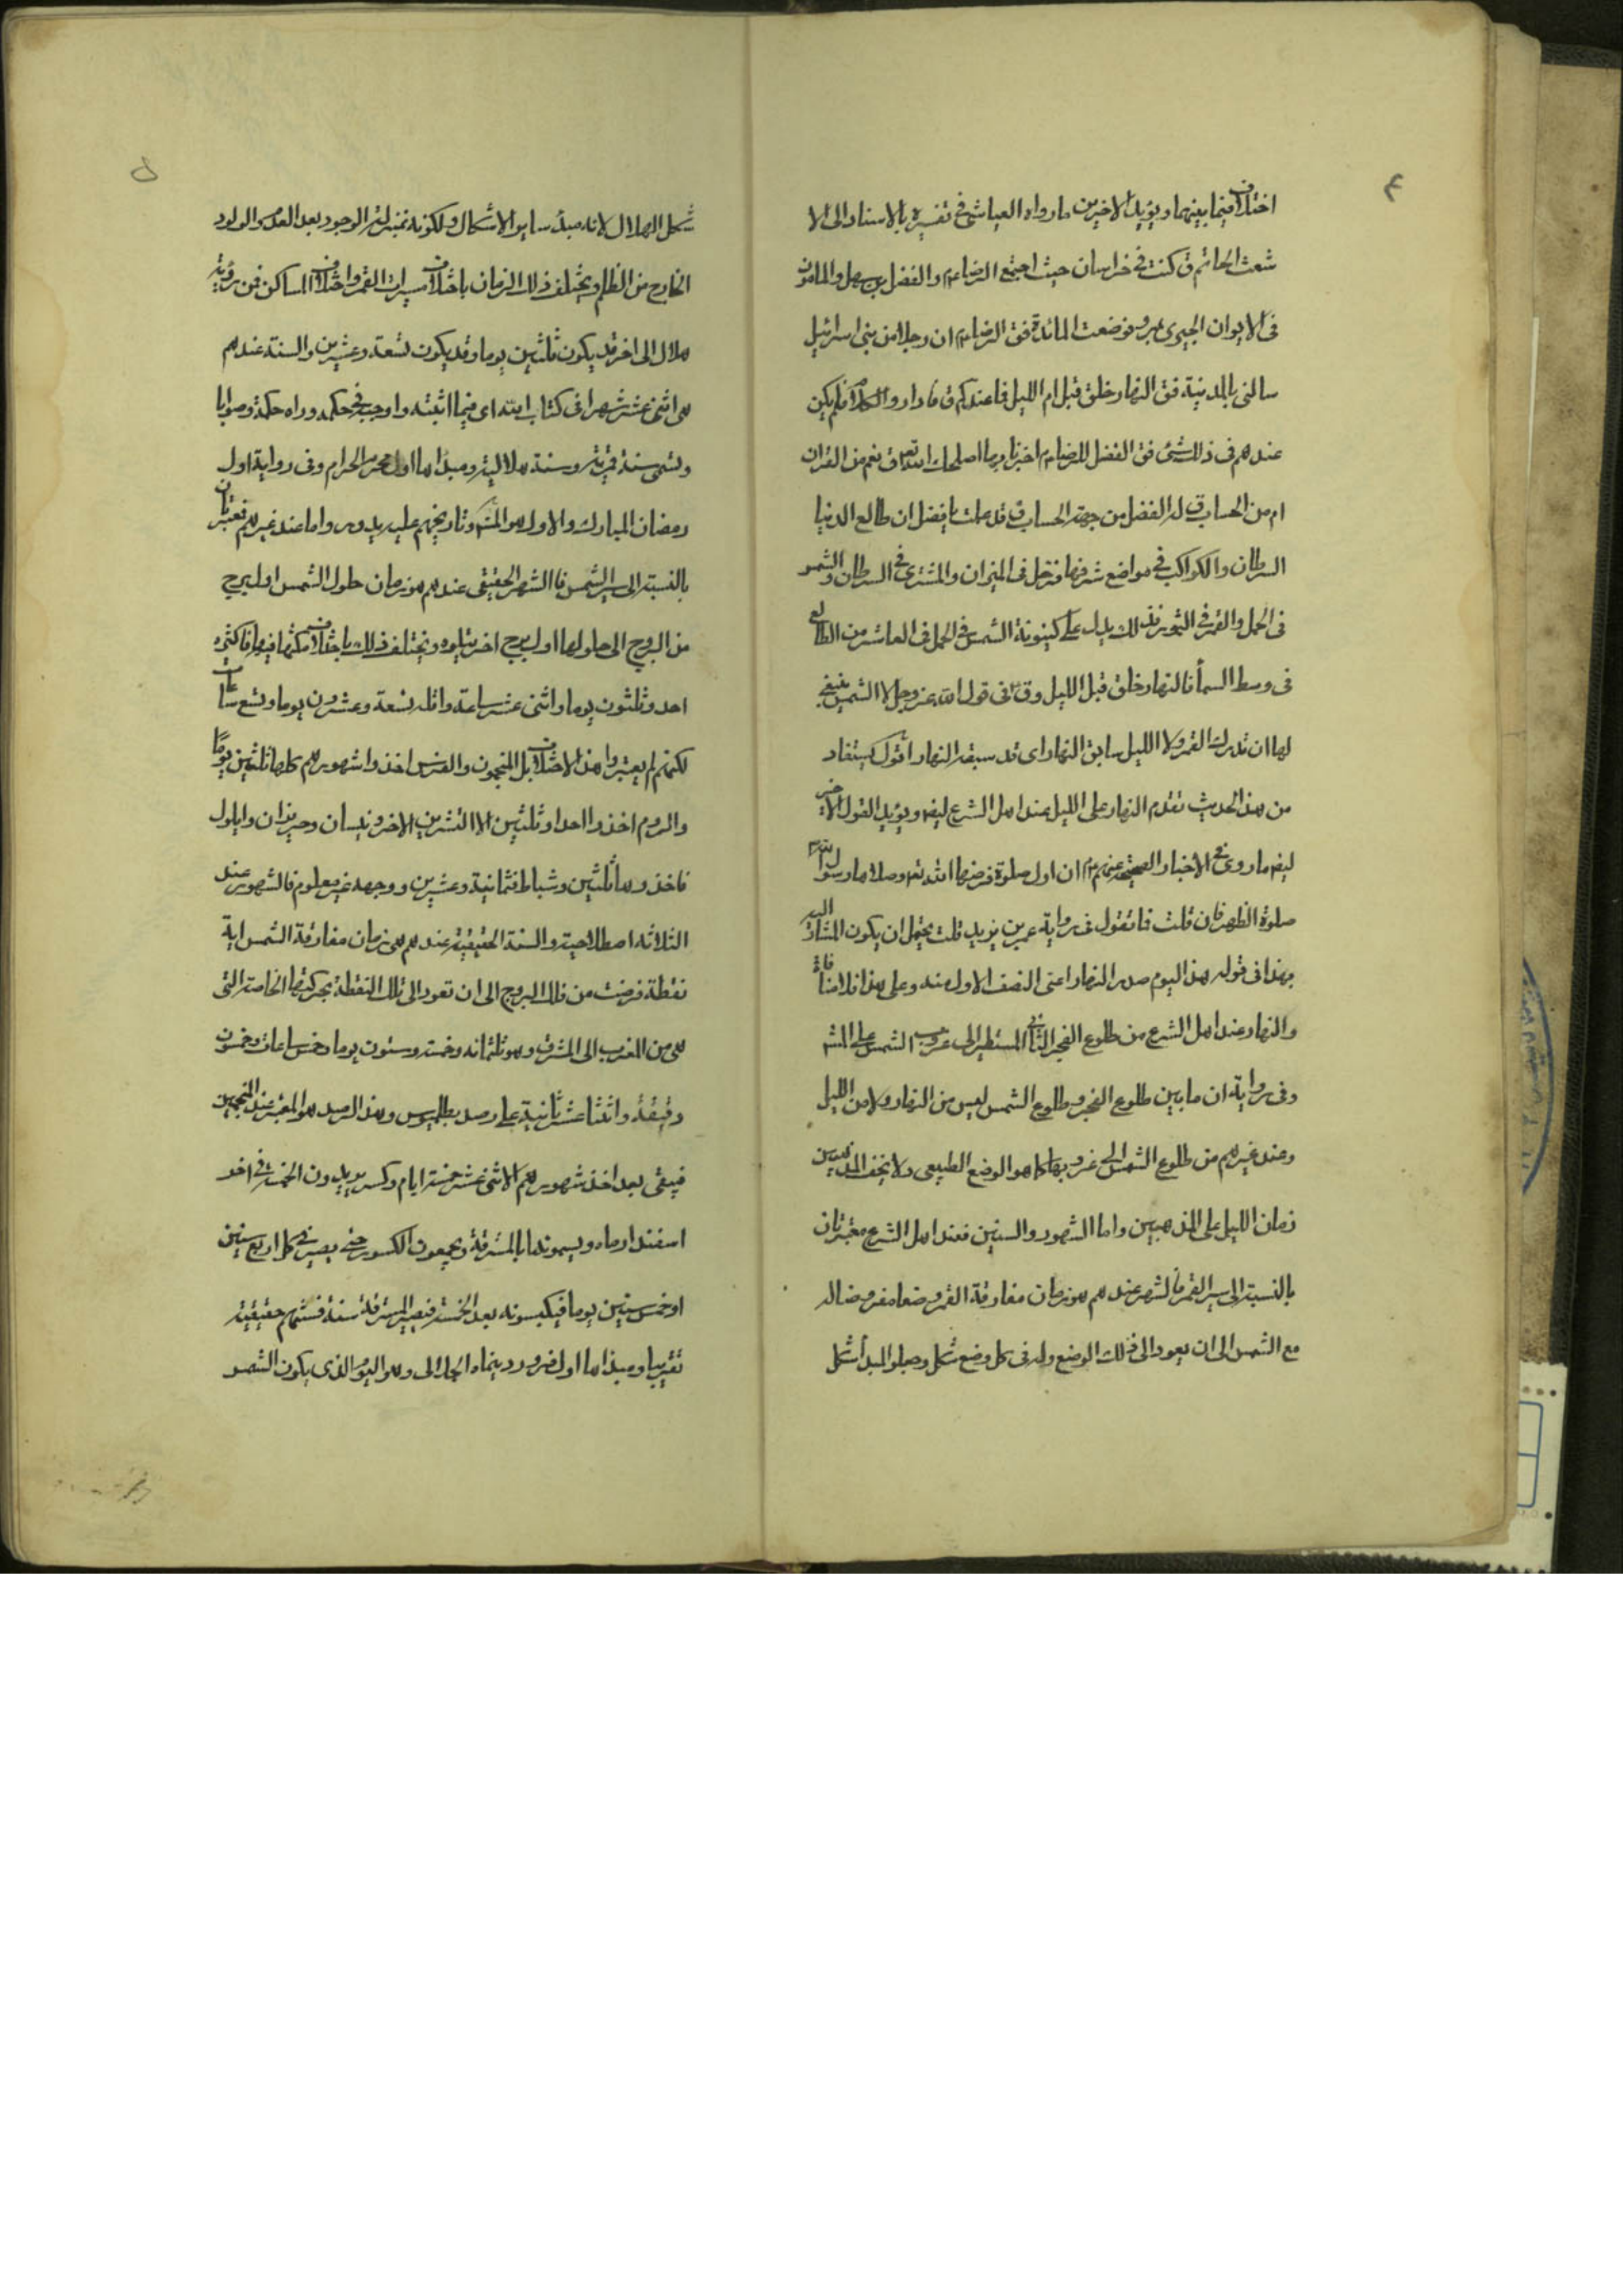 ٤
اختلاف فيما بينهما ويؤيد الاخيرين ما رواه العياشى فى تفسيره بالاسناد الى الا
شعث الحاتم ق كنت فى خراسان حيث اجتمع الرضا ءم والفضل بن سهل والمامون
فى الايوان الحبرى بمرو فوضعت المائدة فق الرضا ءم ان رجلا من بنى اسرائيل
سالنى بالمدينة فق النهار خلق قبل ام الليل فما عندكم ق فاداروا الكلام فلم يكن
عندهم فى ذلك شئ فق الفضل للرضا ءم اخبرنا بها اصلحك الله تعه ق نعم من القران
ام من الحساب ق له الفضل من جهة الحساب ق قد علمت يا فضل ان طالع الدنيا
السرطان والكواكب فى مواضع شرفها فزحل فى الميزان والمشترى فى السرطان والشمس
فى الحمل والقمر فى الثور فذلك يدل على كينونة الشمس فى الحمل فى العاشر من الطالع
فى وسط السمأ فالنهار خلق قبل الليل وق فى قول الله عز وجل لا الشمس ينبغى
لها ان تدرك القمر ولا الليل سابق النهار اى قد سبقه النهار اقول يستفاد
من هذا الحديث تقدم النهار على الليل عند اهل الشرع ايضه ويؤيد القول الاخير
ايضه ما روى فى الاخبار الصحيحة عنهم ءم ان اول صلوة فرضها الله تعه وصلاها رسول الله
صلوة الظهر فان قلت فما تقول فى رواية عمر بن يزيد قلت يحتمل ان يكون المشار اليه
بهذا فى قوله هذا اليوم صدر النهار اعنى النصف الاول منه وعلى هذا فلا منافاة
والنهار عند اهل الشرع من طلوع الفجر الثانى المستطير الى غروب الشمس على المشه
وفى رواية ان ما بين طلوع الفجر وطلوع الشمس ليس من النهار ولا من الليل
وعند غيرهم من طلوع الشمس الى غروبها كما هو الوضع الطبيعى ولا يخفى
زمان الليل على المذهبين واما الشهور والسنين فعند اهل الشرع معتبرتان
بالنسبة الى سير القمر فالشهر عندهم هو زمان مفارقة القمر وضعا مفروضا له
مع الشمس الى ان يعود الى ذلك الوضع وله فى كل وضع شكل وجعلوا المبدأ شكل
۵
شكل الهلال لانه مبدأ ساير الاشكال ولكونه بمنزلة الوجود بعد العدم والولود
الخارج من الظلم ويختلف ذلك الزمان باختلاف مسيرات القمر واختلاف المساكن فمن رؤية
هلال الى اخر قد يكون ثلثين يوما وقد يكون تسعة وعشرين والسنة عندهم
هى اثنى عشر شهرا فى كتاب الله اى فيما اثبته واوجب فى حكمه وراه حكمة وصوابا
وتسمى سنة قمرية وسنة هلالية ومبدأها اول محرم الحرام وفى رواية اول
رمضان المبارك والاول هو المشه وتاريخهم عليه يدور واما عند غيرهم فمعتبرتان
بالنسبة الى سير الشمس فالشهر الحقيقى عندهم هو زمان حلول الشمس اول برج
من البروج الى حلولها اول برج اخر يتلوه ويختلف ذلك باختلاف مكثها فيها فاكثره
احد وثلثون يوما واثنى عشر ساعة واقله تسعة وعشرون يوما وتسع ساعات
لكنهم لم يعتبروا هذا الاختلاف بل المنجمون والفرس اخذوا شهورهم كلها ثلثين يوما
والروم اخذوا احدا وثلثين الا التشرين الاخر ونيسان وحزيران وايلول
فاخذوها ثلثين وشباط فثمانية وعشرين ووجهه غير معلوم فالشهور عند
الثلاثة اصطلاحية والسنة الحقيقية عندهم هى زمان مفارقة الشمس اية
نقطة فرضت من فلك البروج الى ان تعود الى تلك النقطة بحركتها الخاصة التى
هى من المغرب الى المشرق وهو ثلثمائه وخمسة وستون يوما وخمس ساعات وخمسون
دقيقة واثنتا عشر ثانية على رصد بطلميوس وهذا الرصد هو المعتبر عند المنجمين
فيبقى بعد اخذ شهورهم الاثنى عشر خمسة ايام وكسر يزيدون الخمسة فى اخر
اسفندارماه ويسمونها بالمسترقة ويجمعون الكسور حتى يصير فى كل اربع سنين
او خمس سنين يوما فيكبسونه بعد الخمسة فيصير المسترقة ستة فسنتهم حقيقية
تقريبا ومبدأها اول فروردينماه الجلالى وهو اليوم الذى يكون الشمس